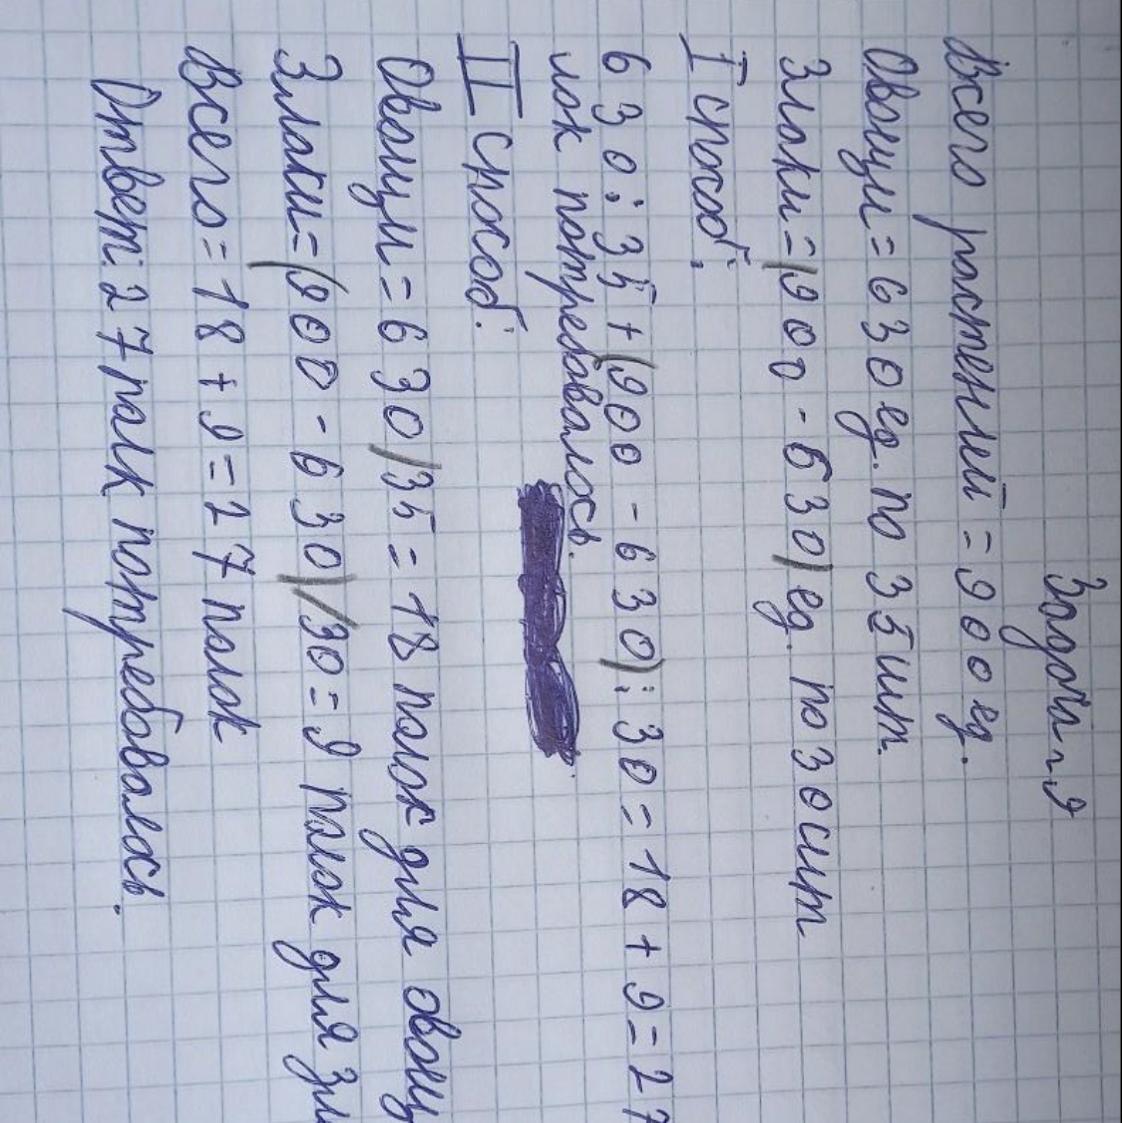 Задача 9
Всего растений = 900 ед.
Овощи = 630 ед. по 35 шт.
Злаки = (900 - 630) ед. по 30 шт
I способ:
630 : 35 + (900 - 630) : 30 = 18 + 9 = 27
лок потребовалось.
II способ:
Овощи = 630/35 = 18 полок для овощ
Злаки = (900 - 630)/30 = 9 полок для зл
Всего = 18 + 9 = 27 полок
Ответ: 27 палк потребовалось.